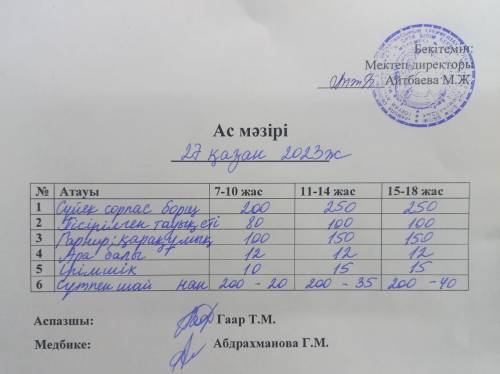 Бекітемін:
Мектеп директоры
Айтбаева М.Ж
Ас мәзірі
27 қазан 2023ж
№ Атауы 7-10 жас 11-14 жас 15-18 жас
1 Сүйек сорпас борщ 200 250 250
2 Пісірілген тауық еті 80 100 100
3 Гарнир; қарақұмық 100 150 150
4 Ара балы 12 12 12
5 Ірімшік 10 15 15
6 Сүтпен шай нан 200 - 20 200 - 35 200 - 40
Аспазшы: Гаар Т.М.
Медбике: Абдрахманова Г.М.